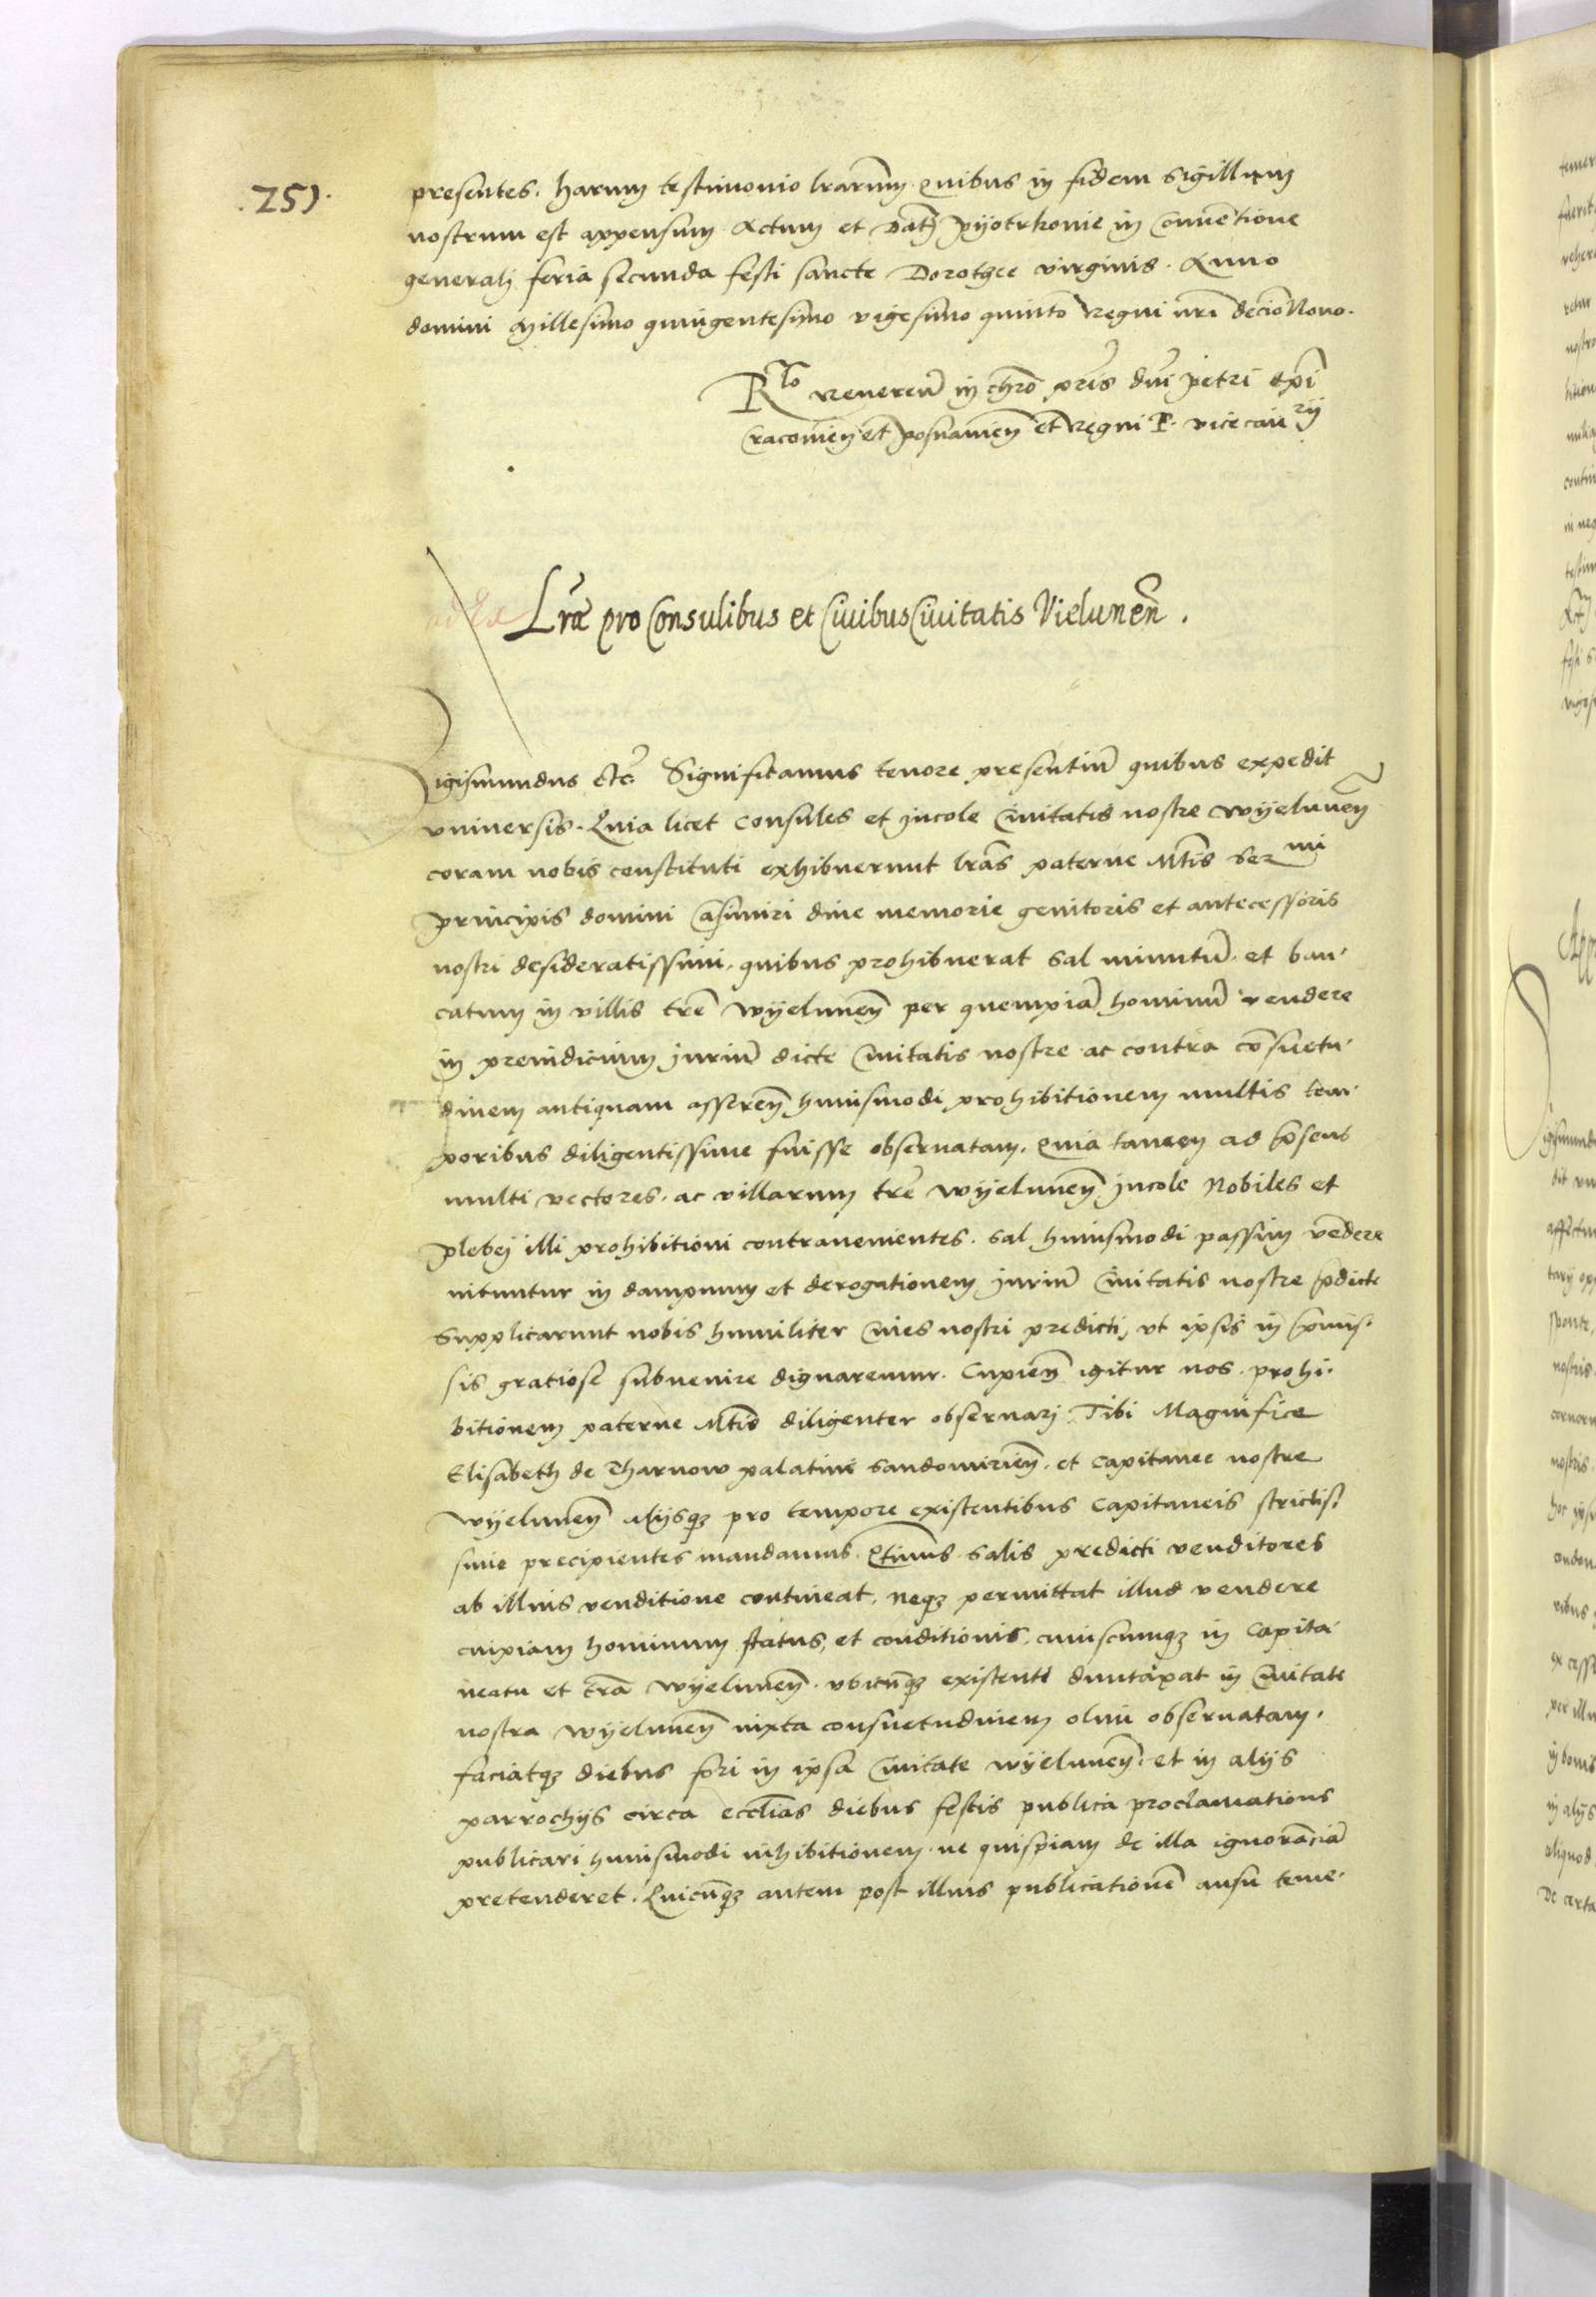 251.
presentes. Harum testimonio lrarum. quibus in fidem Sigillum
nostrum est appensum. Actum et Dat Pyotrkovie in Conventione
generali feria secunda festi sancte Dorothee virginis. Anno
domini Millesimo quingentesimo vigesimo quinto Regni nri decio Nono.
Rlo Reveren in chro pris dni Petri Epi
Cracovien et Posnanien et Regni P. vicecancrij
Lrae pro Consulibus et Civibus Civitatis Vielunen.
Sigismundus etc. Significamus tenore presentiu quibus expedit
vniversis. Quia licet Consules et Incole Civitatis nostre Wyelunen
coram nobis constituti exhibuerunt lras paterne Mtis Sermi
principis domini Casimiri dive memorie genitoris et antecessoris
nostri desideratissimi. quibus prohibuerat Sal minutu. et ban-
catum in villis tre Wyelunen per quempia hominu vendere
in preiudicium Juriu dicte Civitatis nostre ac contra cosuetu-
dinem antiquam asseren huiusmodi prohibitionem multis tem-
poribus diligentissime fuisse observatam. Quia tamen ad psens
multi vectores. ac villarum tre Wyelunen Incole Nobiles et
plebej illi prohibitioni contravenientes. Sal huiusmodi passim vedere
nituntur in dampnum et derogationem Juriu Civitatis nostre pdicte
Supplicarunt nobis humiliter Cives nostri predicti, vt ipsis in pmis-
sis gratiose subvenire dignaremur. Cupien igitur nos. prohi-
bitionem paterne Mtis diligenter observari Tibi Magnifice
Elisabeth de Tharnow palatine Sandomirien. et Capitanee nostre
Wyelunen alijsq pro tempore existentibus Capitaneis strictis-
sime precipientes mandamus. Qtinus Salis predicti venditores
ab illius venditione contineat, neq permittat illud vendere
cuipiam hominum status, et conditionis, cuiuscumq in Capita-
neatu et tra Wyelunen. vbicuq existenti duntaxat in Civitate
nostra Wyelunen iuxta consuetudinem olim observatam.
faciatq diebus fori in ipsa Civitate Wyelunen. et in alijs
parrochijs circa ecclias diebus festis publica proclamatione
publicari huiusmodi inhibitionem. ne quispiam de illa ignoracia
pretenderet. Quicuq autem post illius publicatione ausu teme-